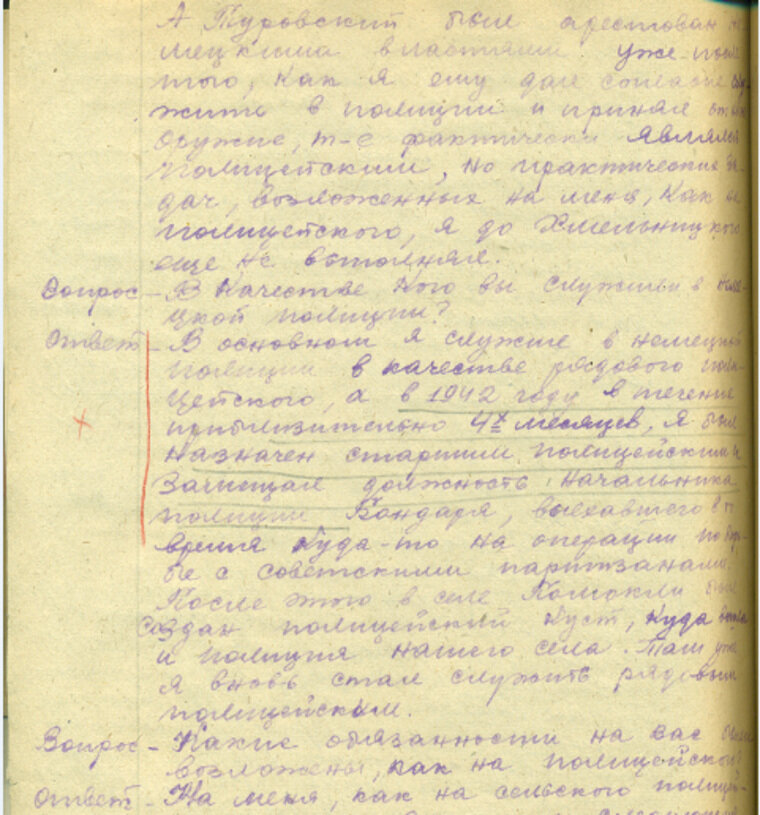 А Туровский был арестован не-
мецкими властями уже после
того, как я ему дал согласие слу-
жить в полиции и принял от него
оружие, т-е фактически являлся
полицейским, но практические за-
дач, возложенных на меня, как на
полицейского, я до Хмельницкого
еще не выполнял.
Вопрос - В качестве кого вы служили в неме-
цкой полиции?
Ответ - В основном я служил в немецкой
полиции в качестве рядового поли-
цейского, а в 1942 году в течение
приблизительно 4х месяцев, я был
назначен старшим полицейским и
замещал должность начальника
полиции Бондаря, выехавшего в то
время куда-то на операции по борь-
бе с советскими партизанами.
После этого в селе был
создан полицейский куст, куда вошла
и полиция нашего села. Там уже
я вновь стал служить рядовым
полицейским.
Вопрос - Какие обязанности на вас были
возложены, как на полицейского
Ответ - На меня, как на сельского полицей-